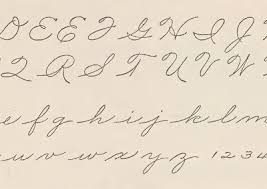 D E E F G H I J
Q R S T U V W
e f g h i j k l m
u v w x y z 1 2 3 4